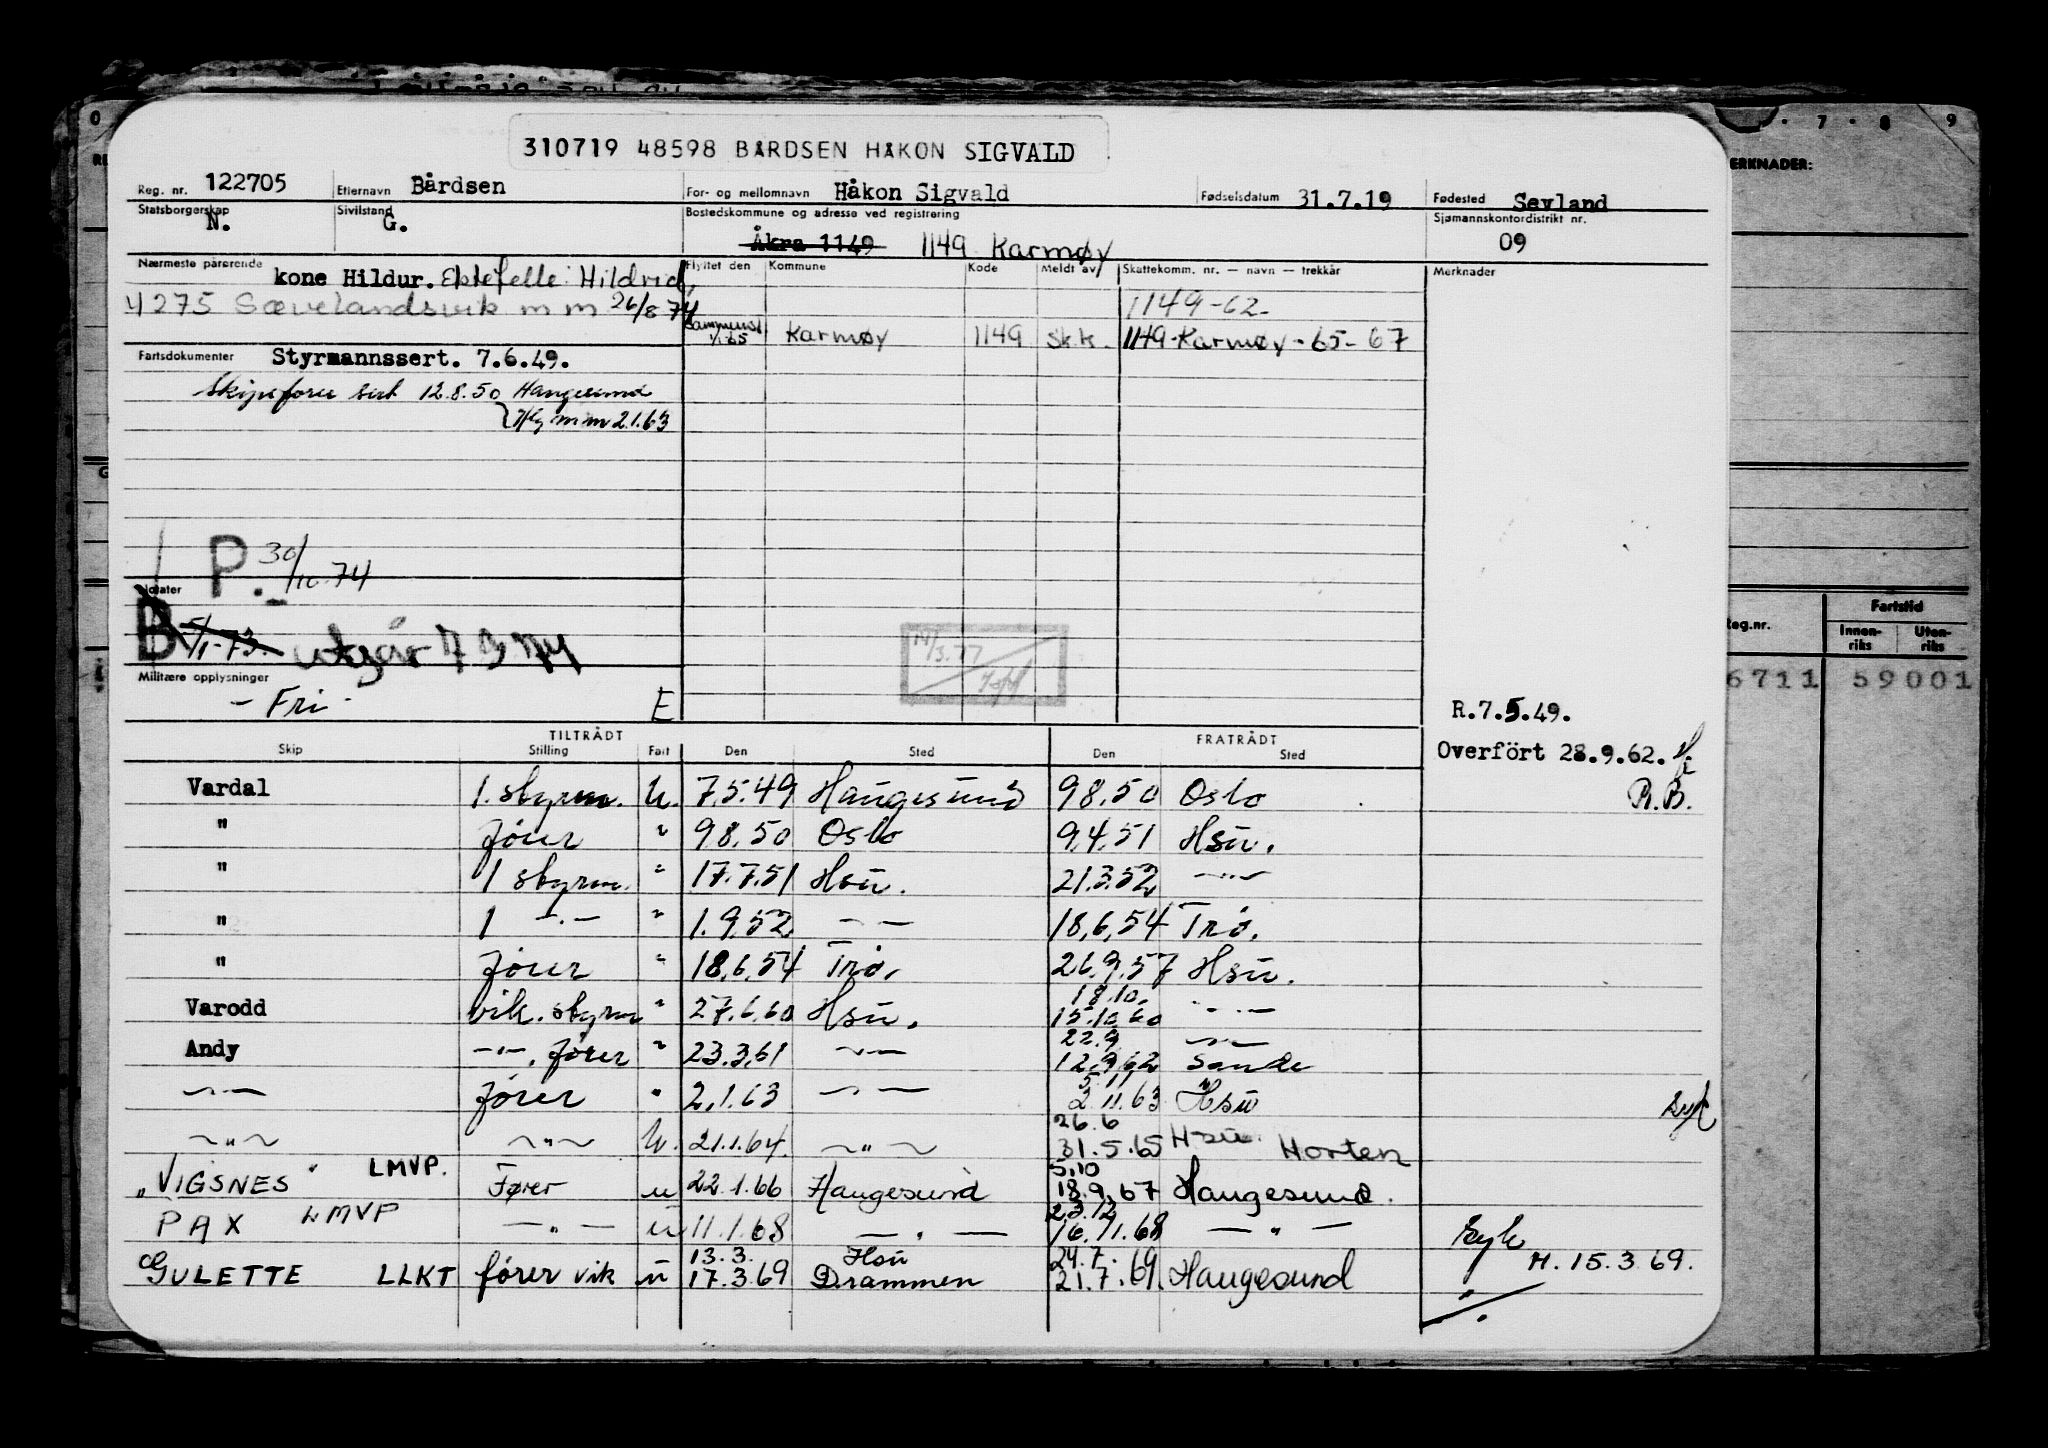 310719 48598 BÅRDSEN HÅKON SIGVALD
Reg. nr. 122705 Etternavn Bårdsen For- og mellomnavn Håkon Sigvald Fødselsdatum 31.7.19 Fødested Sevland
Statsborgerskap N. Sivilstand G. Bostedskommune og adresse ved registrering Åkra 1149 1149 Karmøy Sjømannskontordistrikt nr. 09
Nærmeste pårørende kone Hildur. Ektefelle: Hildrid,
4275 Sævelandsvik m m 26/8 74
Flyttet den Kommune Kode Meldt av Skattekomm. nr. — navn — trekkår Merknader
1149-62-
1/1-65 Karmøy 1149 Sk.k. 1149-Karmøy-65-67
Fartsdokumenter Styrmannssert. 7.6.49.
Skipsfører sert 12.8.50 Haugesund
Hg m m 2.1.63
P. 30/10-74
Notater
B 5/1-73. utgår 7 3 74
Militære opplysninger
- Fri - E
R.7.5.49.
Overfört 28.9.62.
R.B.
TILTRÅDT FRATRÅDT
Skip Stilling Fart Den Sted Den Sted
Vardal 1. styrm. U. 7.5.49 Haugesund 9.8.50 Oslo
" fører " 9.8.50 Oslo 9.4.51 Hsu.
" 1 styrm. " 17.7.51 Hsu. 21.3.52 —"—
" 1 —"— " 1.9.52 —"— 18.6.54 Trø.
" fører " 18.6.54 Trø. 26.9.57 Hsu.
Varodd vik. styrm " 27.6.60 Hsu. 18.10. 15.10.60 —"—
Andy —"—, fører " 23.3.61 —"— 22.9 12.9.62 —"— Sande
—"— fører " 2.1.63 —"— 5.11 2.11.63 Hsu
—"— —"— U. 21.1.64. —"— 26.6 31.5.65 Hsu. Horten
"VIGSNES" LMVP. Fører u 22.1.66 Haugesund 5.10 18.9.67 Haugesund.
PAX LMVP —"— u 11.1.68 —"— 23.12 16.11.68 —"— Syk
GULETTE LLKT fører vik u 13.3. 17.3.69 Hsu Drammen 24.7. 21.7.69. Haugesund H. 15.3.69.
0 7 8 9
ERKNADER:
Reg.nr. Fartstid
Innenriks Utenriks
6711 59001